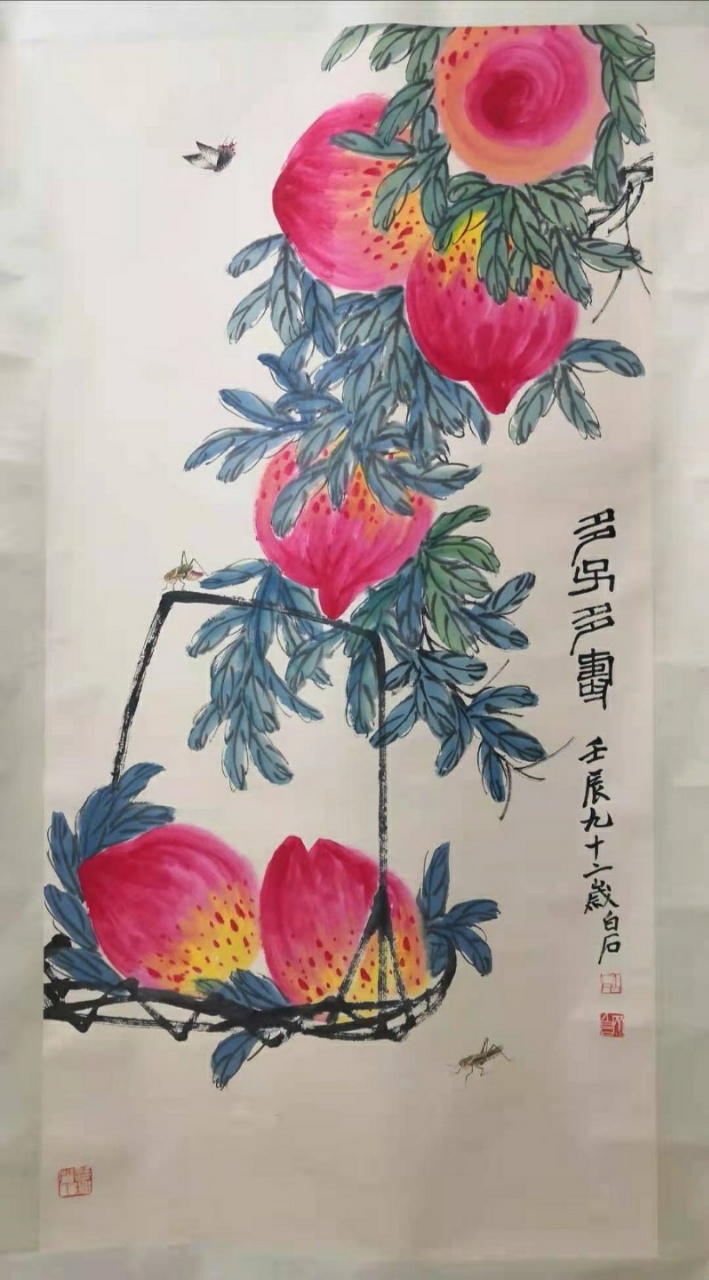 多子多壽
壬辰九十二歲白石